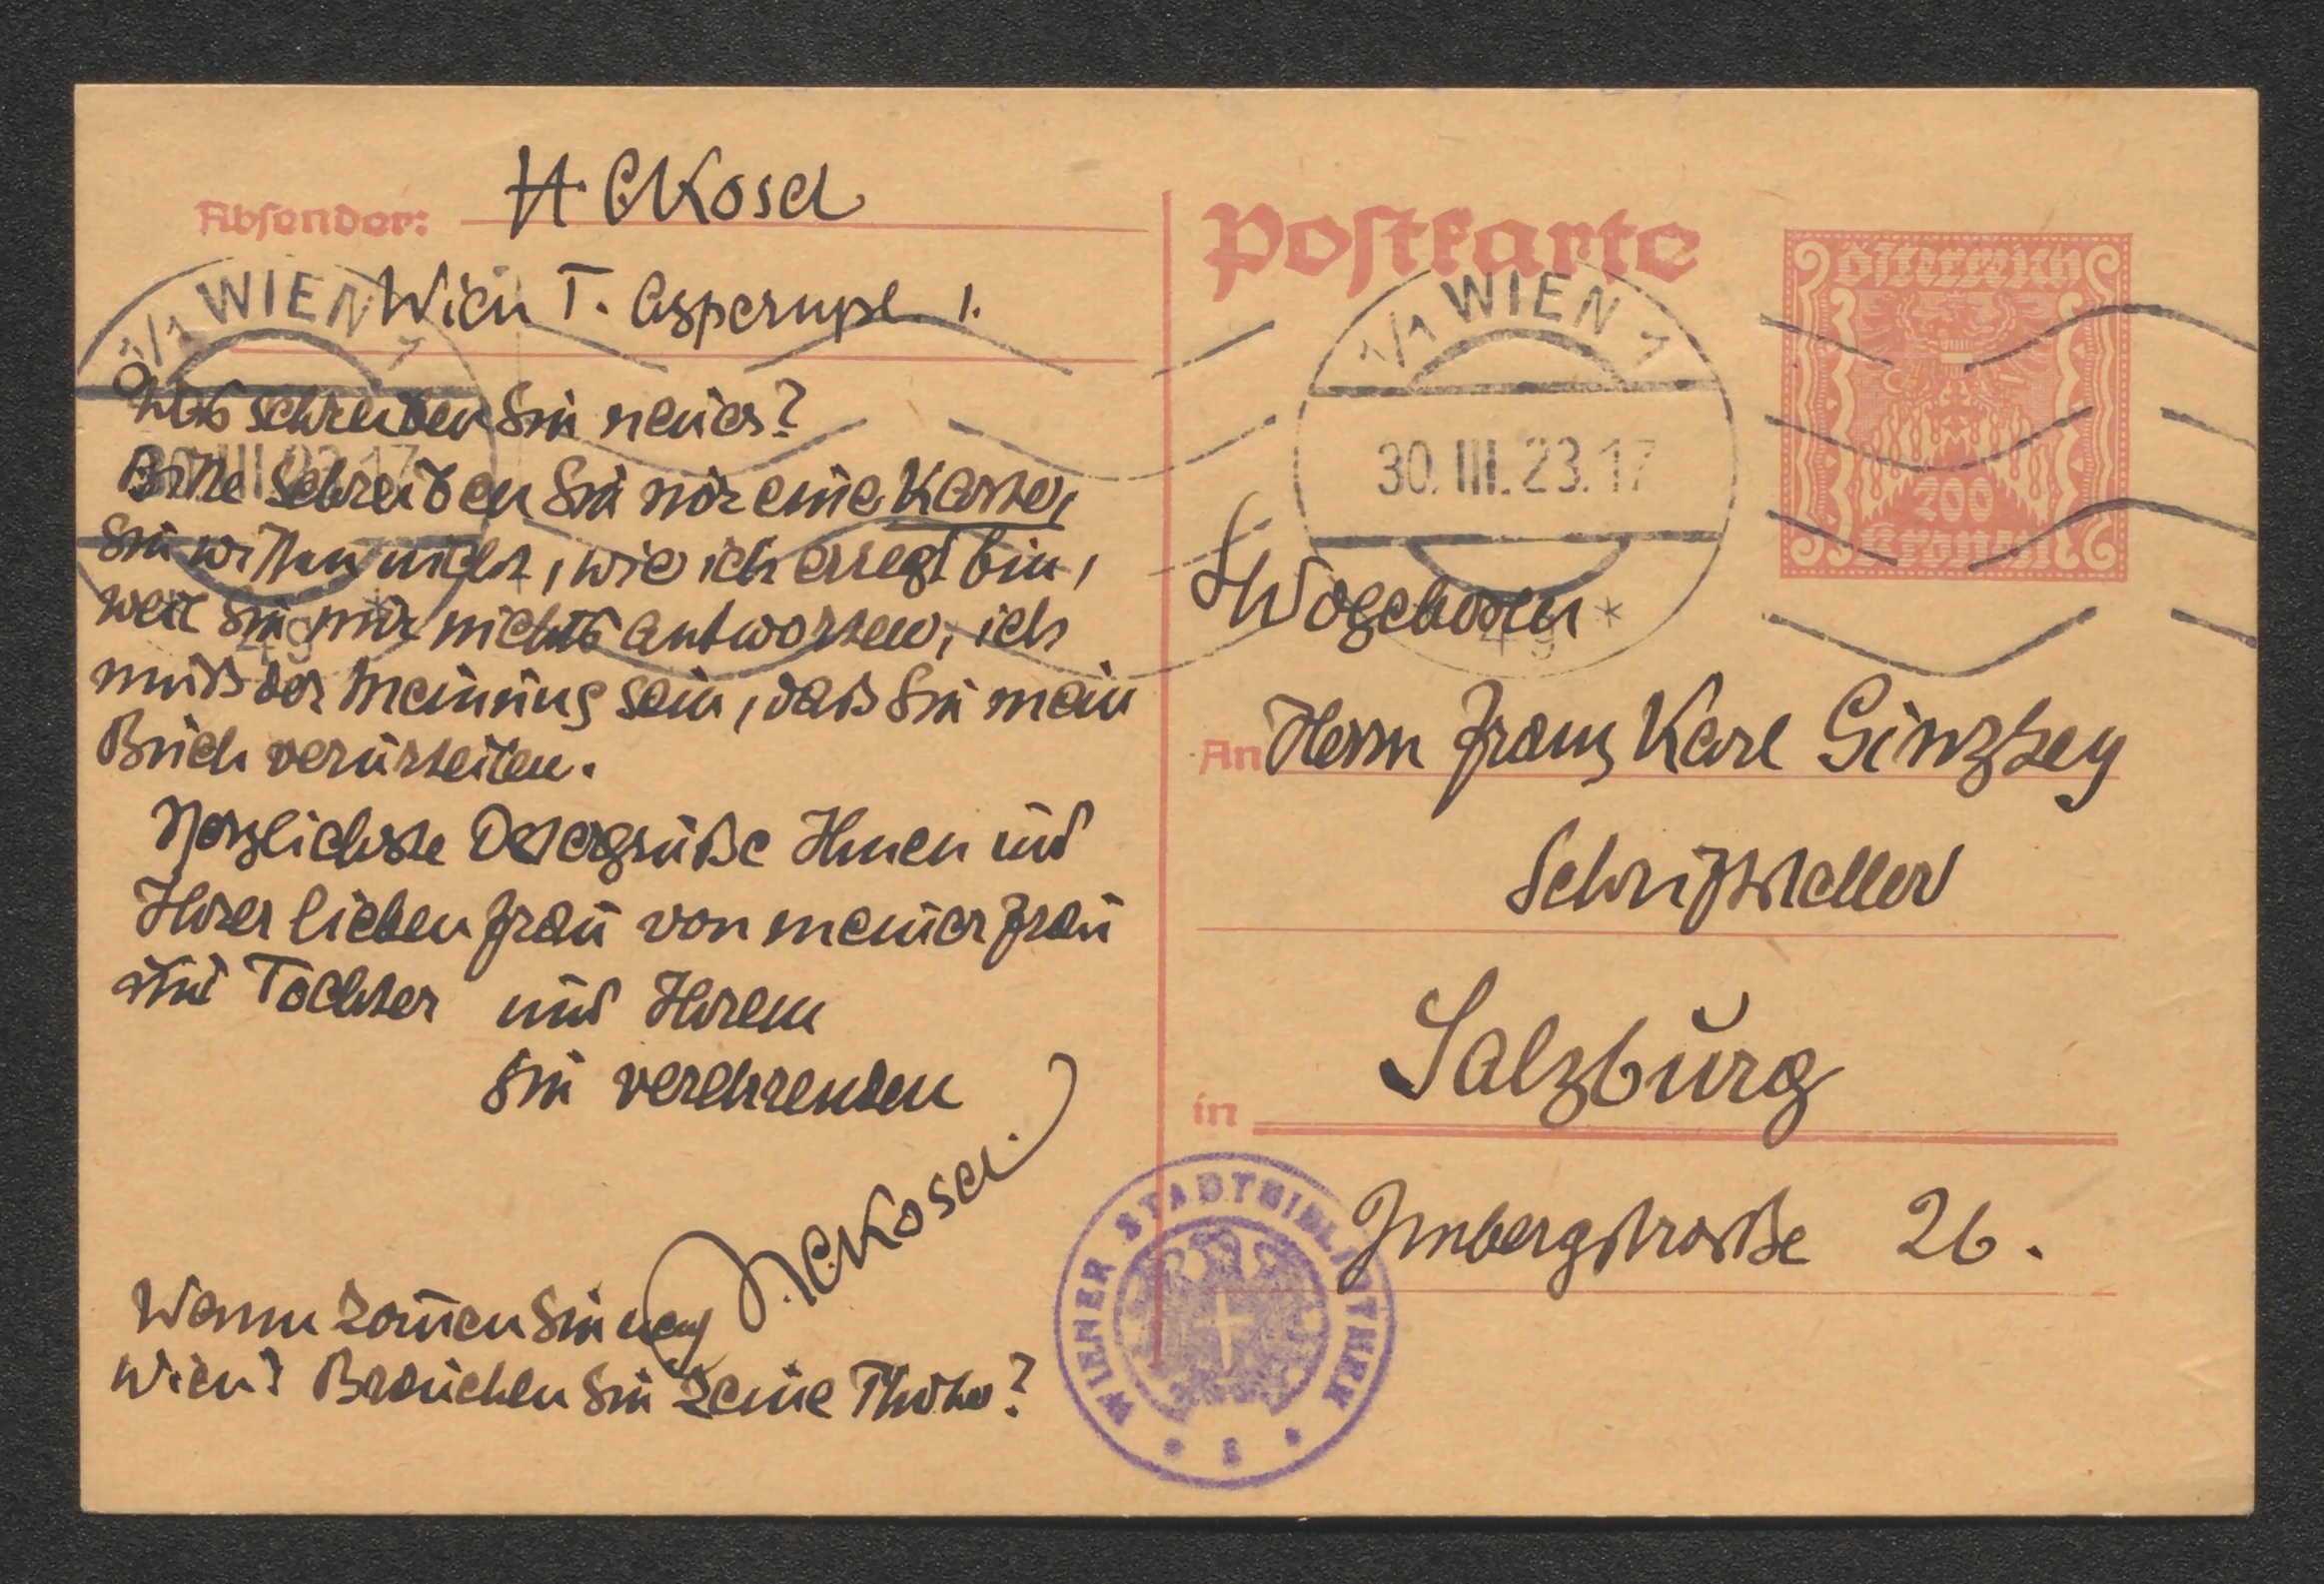 Absender: H C Kosel
Wien I. Aspernpl. 1.
Was schreiben Sie neues?
Bitte schreiben Sie mir eine Karte,
Sie wissen nicht, wie ich erregt bin,
weil Sie mir nichts antworten, ich
muß der Meinung sein, daß Sie mein
Buch verurteilen.
Herzlichste Ostergrüße Ihnen und
Ihrer lieben Frau von meiner Frau
und Tochter und Ihrem
Sie verehrenden
HCKosel.
Wann kom̅en Sie nach
Wien? Brauchen Sie keine Photos?
Postkarte
Österreich
200
Kronen
1/1 WIEN 1
30.III.23.17
* 4g *
1/1 WIEN 1
30.III.23.17
4g
Hochwohlgeboren
An Herrn Franz Karl Ginzkey
Schriftsteller
in Salzburg
Imbergstraße 26.
WIENER STADTBIBLIOTHEK